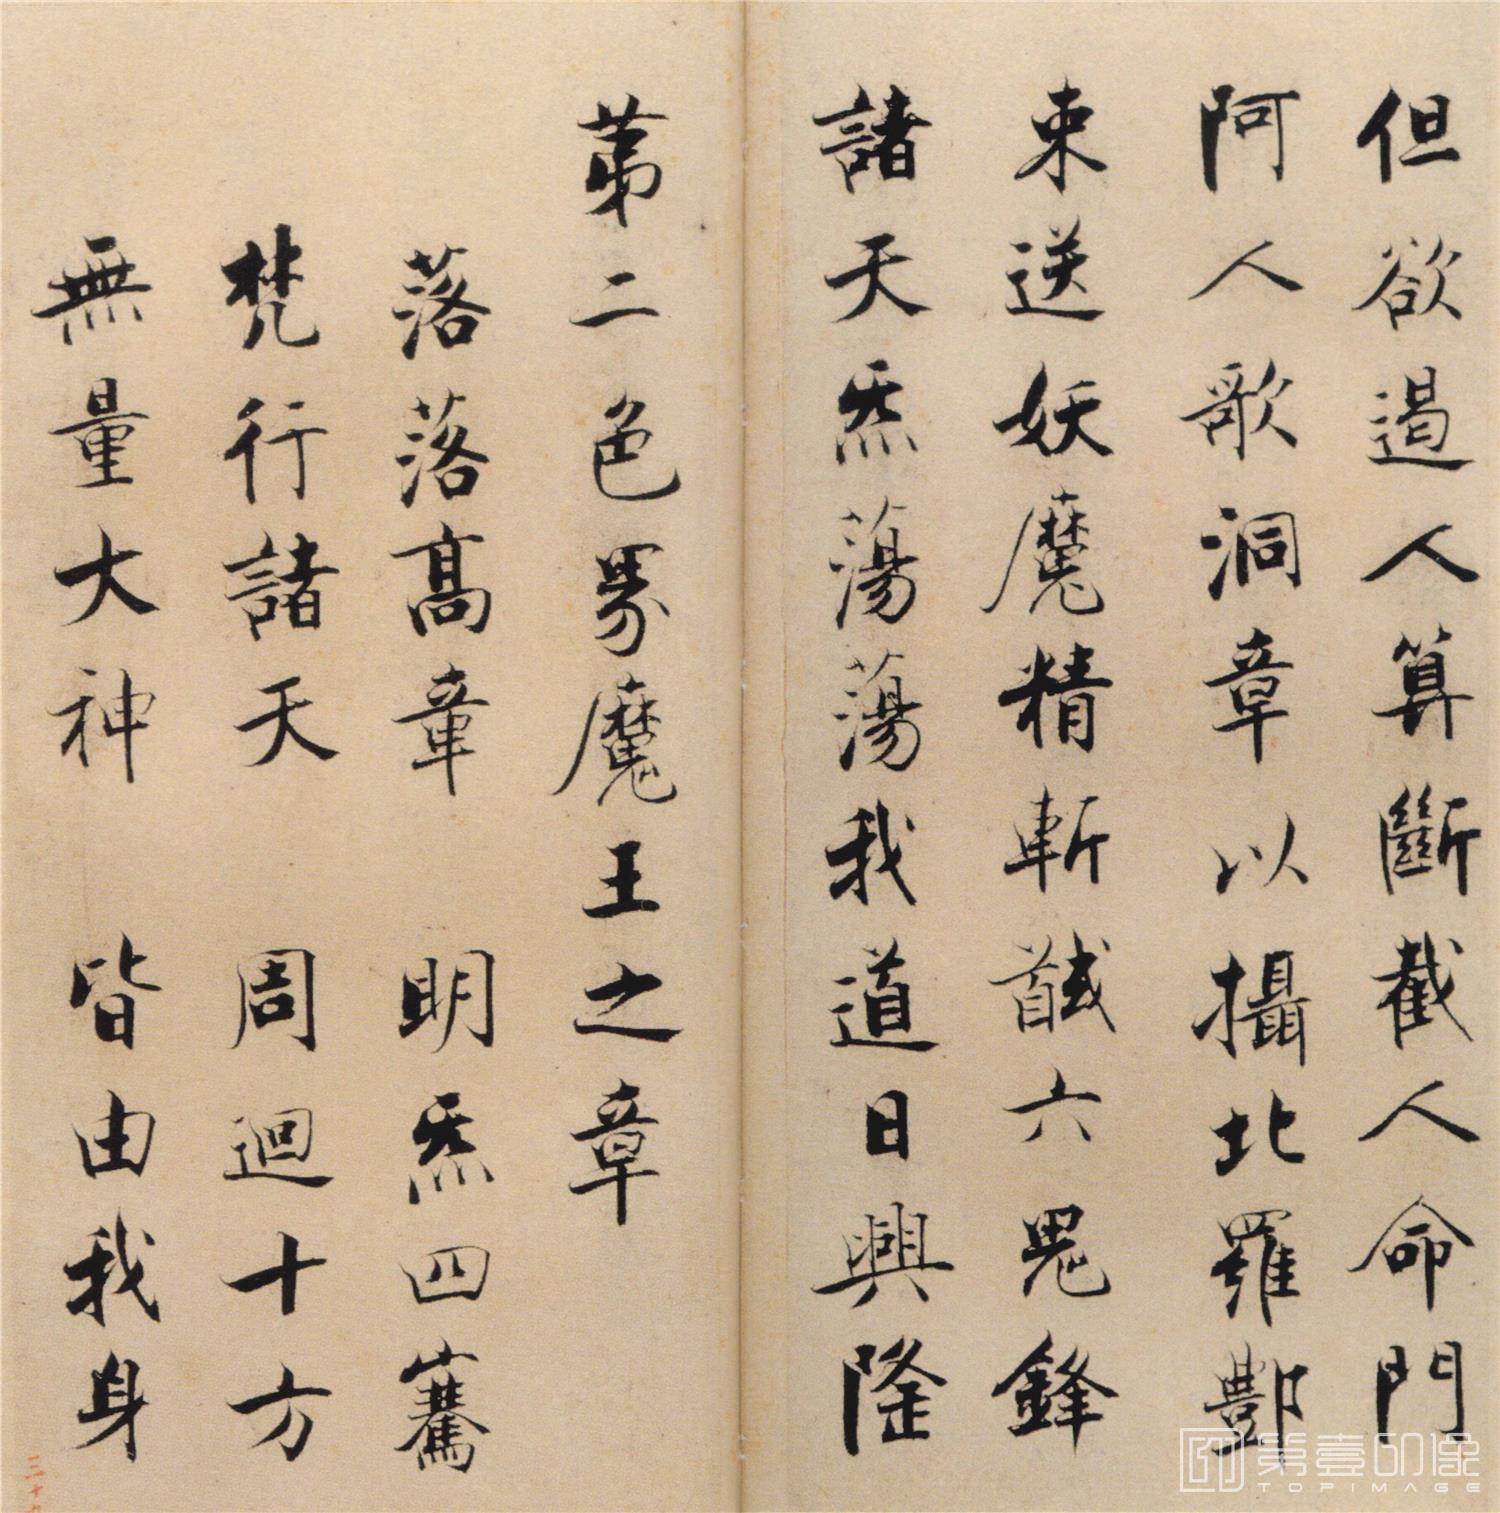 但欲遏人算斷截人命門
阿人歌洞章以攝北羅酆
束送妖魔精斬馘六鬼鋒
諸天炁蕩蕩我道日興隆
第二色界魔王之章
落落高章 明炁四騫
梵行諸天 周迴十方
無量大神 皆由我身
第壹印像
TOPIMAGE